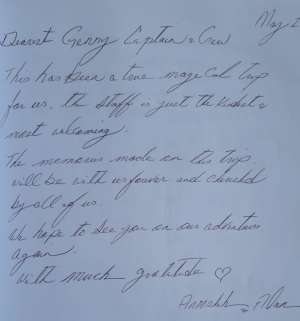 May
Dearest Genny Captain & Crew
This has been a true magical trip
for us. the staff is just the kindest &
most welcoming.
The memories made on this trip
will be with us forever and cherishd
by all of us.
We hope to see you on our adventures
again.
With much gratitude ♡
&